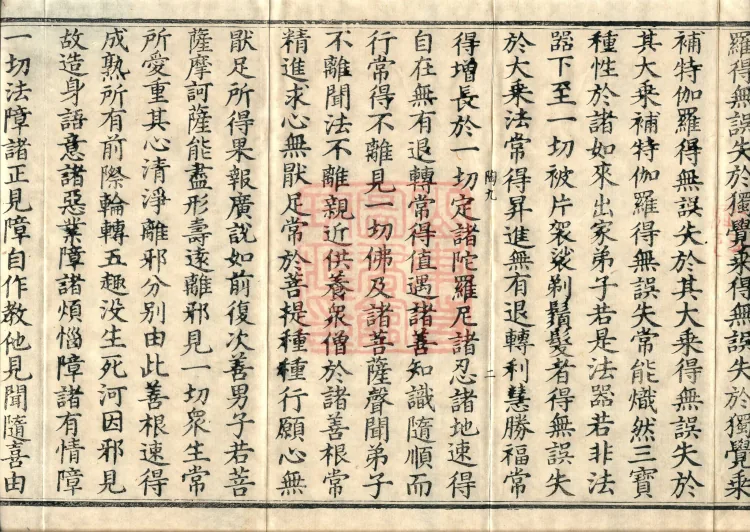 羅得無誤失於獨覺乘得無誤失於獨覺乘
補特伽羅得無誤失於其大乘得無誤失於
其大乘補特伽羅得無誤失常能熾然三寶
種性於諸如來出家弟子若是法器若非法
器下至一切被片袈裟剃鬚髮者得無誤失
於大乘法常得昇進無有退轉利慧勝福常
陶九 二
得增長於一切定諸陀羅尼諸忍諸地速得
自在無有退轉常得值遇諸善知識隨順而
行常得不離見一切佛及諸菩薩聲聞弟子
不離聞法不離親近供養眾僧於諸善根常
精進求心無厭足常於菩提種種行願心無
厭足所得果報廣說如前復次善男子若菩
薩摩訶薩能盡形壽遠離邪見一切眾生常
所愛重其心清淨離邪分別由此善根速得
成熟所有前際輪轉五趣沒生死河因邪見
故造身語意諸惡業障諸煩惱障諸有情障
一切法障諸正見障自作教他見聞隨喜由